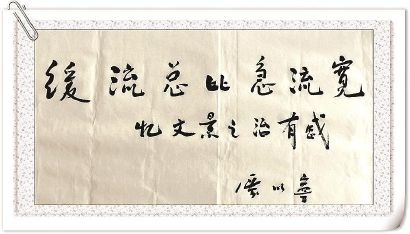 缓流总比急流宽
忆文景之治有感
以